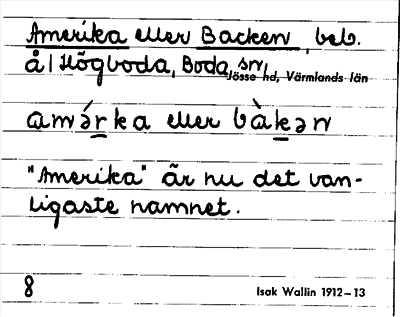 Amerika eller Backen, beb.
å Högboda, Boda sn,
Jösse hd, Värmlands län
amǝ́rka eller bàkǝn
"Amerika" är nu det van-
ligaste namnet.
8
Isak Wallin 1912–13